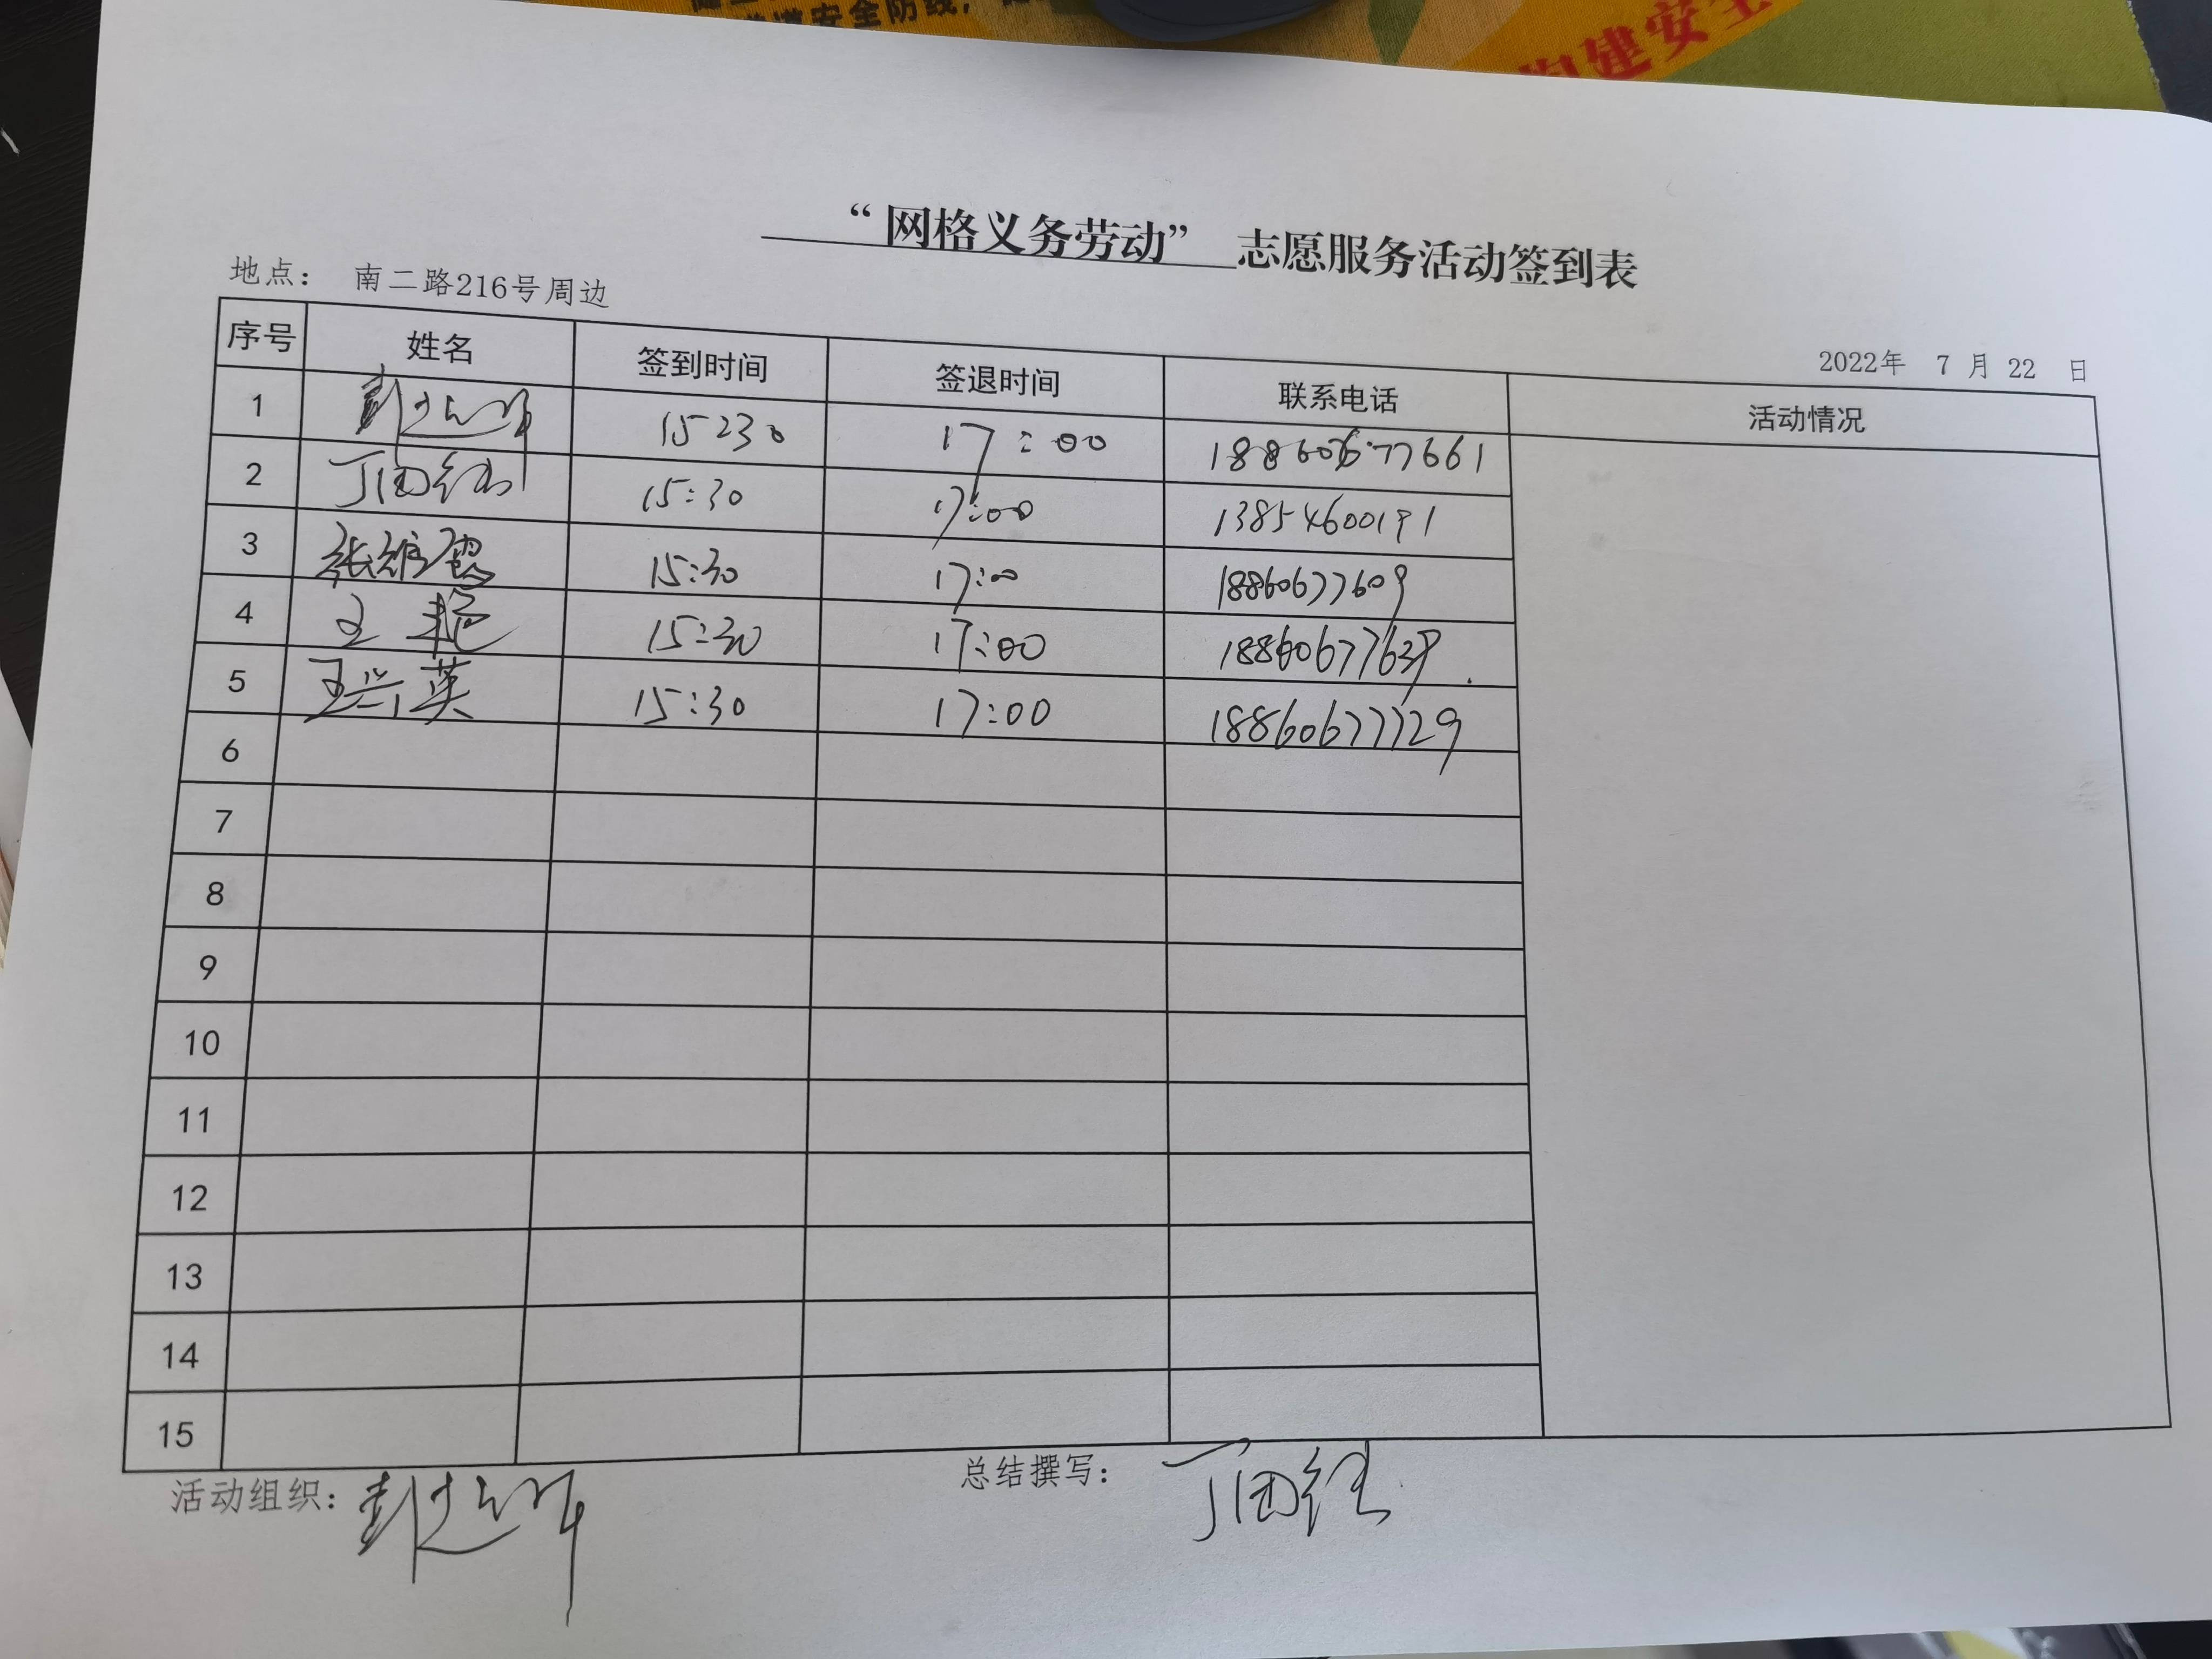 道安全防线，
构建安全
“网格义务劳动” 志愿服务活动签到表
地点： 南二路216号周边
2022年 7 月 22 日
序号 姓名 签到时间 签退时间 联系电话 活动情况
1 15:30 17:00
2 丁团红 15:30 17:00 13854600191
3 15:30 17:00 18860677609
4 王艳 15:30 17:00
5 王兴英 15:30 17:00 18860677729
6
7
8
9
10
11
12
13
14
15
活动组织：
总结撰写：